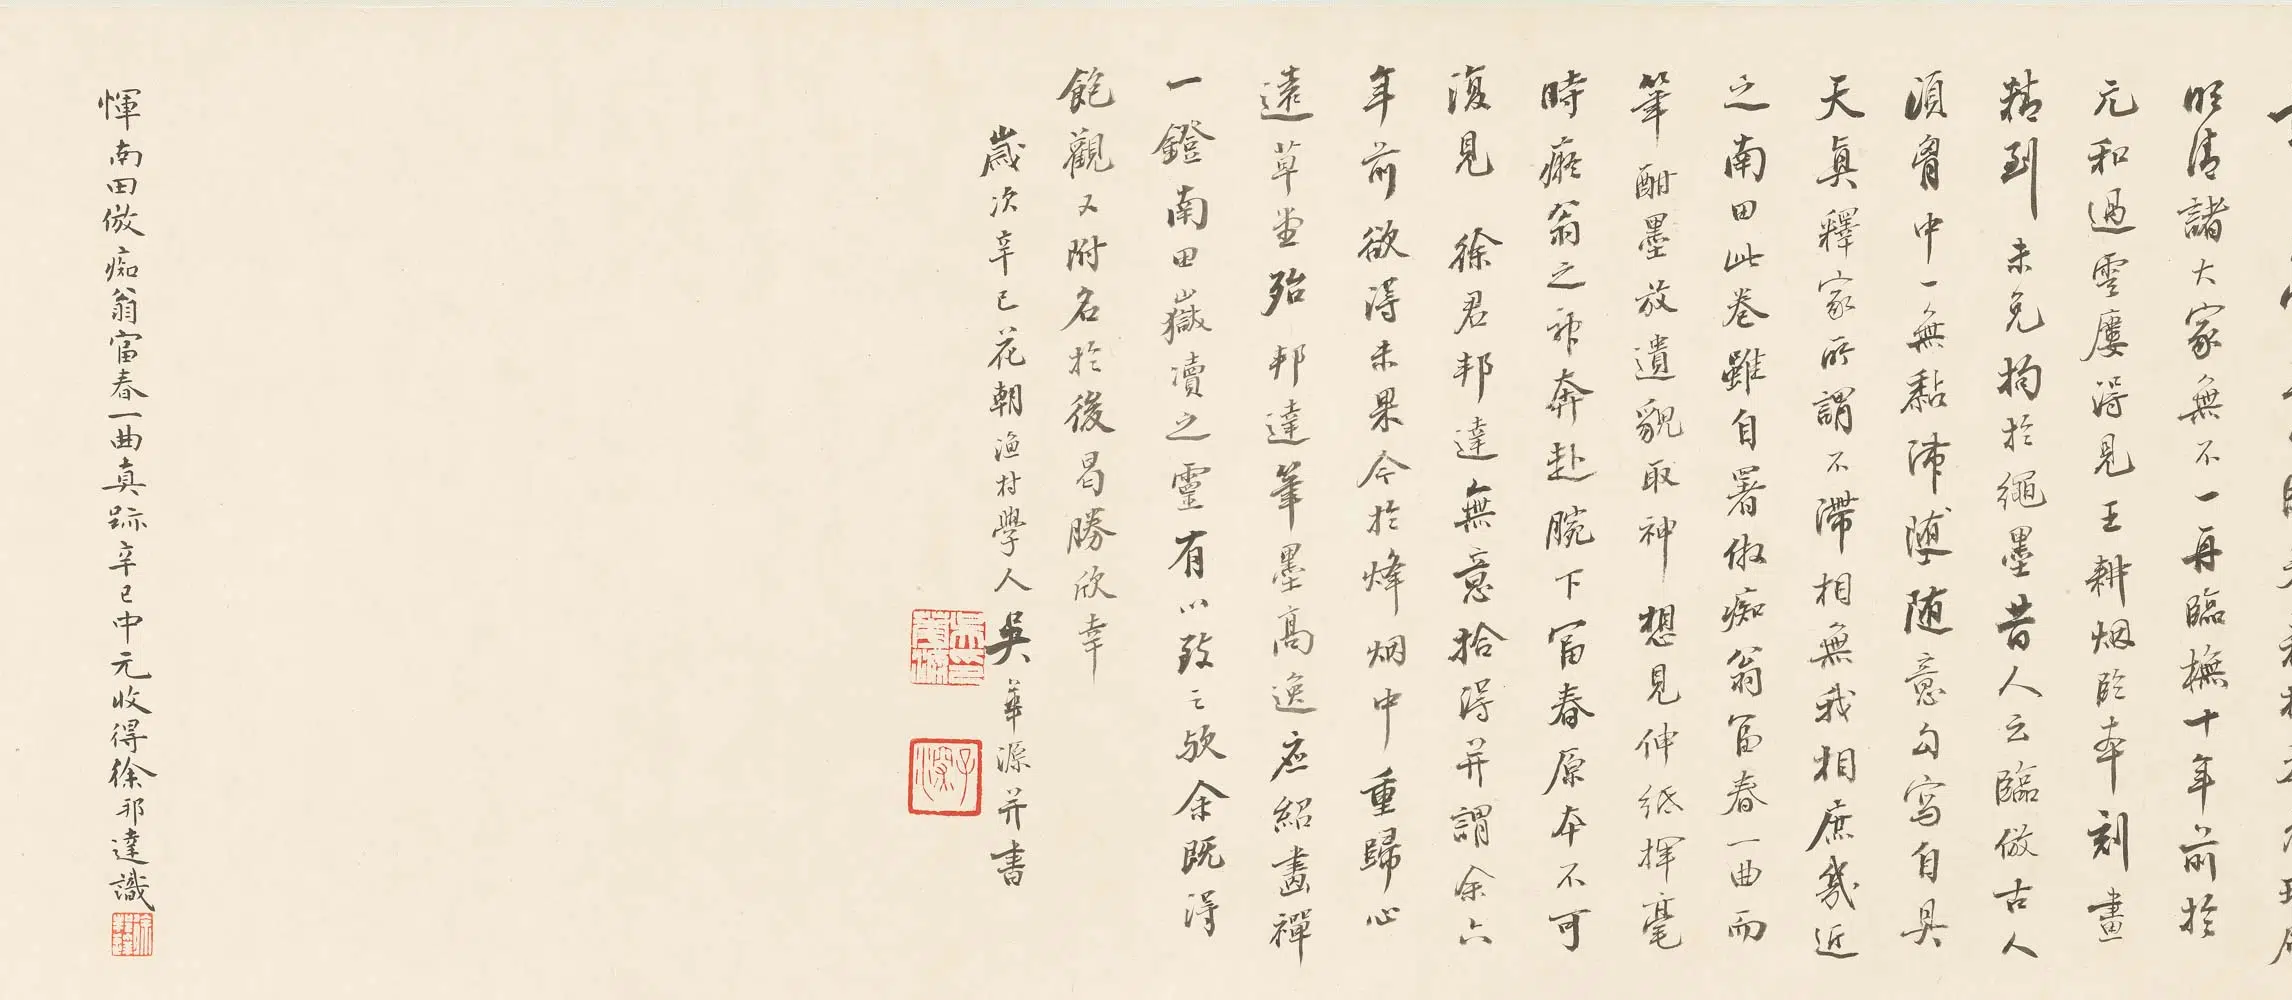 明清諸大家無不一再臨橅十年前於
元和過雲廔得見王耕烟臨本刻畫
精到未免拘於繩墨昔人云臨倣古人
須胷中一無黏滯随意勾寫自具
天真釋家所謂不滯相無我相庶幾近
之南田此卷雖自署倣痴翁富春一曲而
筆酣墨放遺貌取神想見伸紙揮毫
時癡翁之神奔赴腕下富春原本不可
復見徐君邦達無意拾得并謂余六
年前欲得未果今於烽烟中重歸心
遠草堂殆邦達筆墨高逸應紹畫禪
一鐙南田嶽瀆之靈有以致之歟余既得
飽觀又附名於後曷勝欣幸
歲次辛巳花朝漁村學人吳華源并書
惲南田倣痴翁富春一曲真跡辛巳中元收得徐邦達識